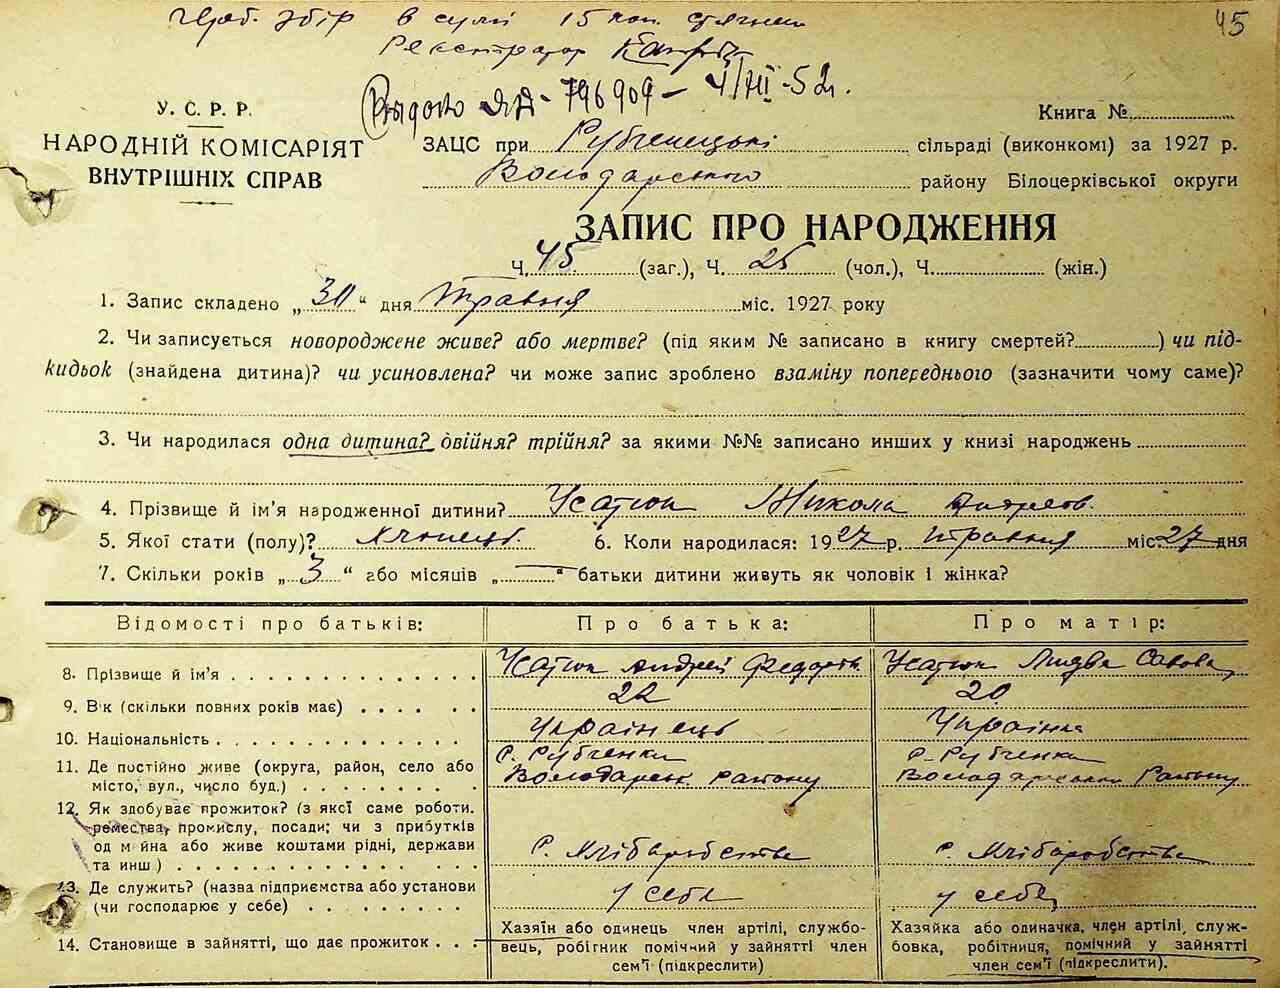 збір в сумі 15 коп. стягнен
Реєстратор
45
Выдано ЯА - 796909 - 4/VII - 52г.
У. С. Р. Р.
НАРОДНІЙ КОМІСАРІЯТ
ВНУТРІШНІХ СПРАВ
Книга №
ЗАЦС при Рубченецькі сільраді (виконкомі) за 1927 р.
Володарського району Білоцерківської округи
ЗАПИС ПРО НАРОДЖЕННЯ
Ч. 45. (заг.), Ч. 25 (чол.), Ч. (жін.)
1. Запис складено „ 30 “ дня Травня міс. 1927 року
2. Чи записується новороджене живе? або мертве? (під яким № записано в книгу смертей? ) чи під-
кидьок (знайдена дитина)? чи усиновлена? чи може запис зроблено взаміну попереднього (зазначити чому саме)?
3. Чи народилася одна дитина? двійня? трійня? за якими №№ записано инших у книзі народжень
4. Прізвище й ім'я народженної дитини? Усатюк Микола Андреєв.
5. Якої стати (полу)? Хлопець. 6. Коли народилася: 1927 р. травня міс. 27 дня
7. Скільки років „ 3 “ або місяців „ “ батьки дитини живуть як чоловік і жінка?
Відомості про батьків: Про батька: Про матір:
8. Прізвище й ім'я Усатюк Андрей Федоров. Усатюк Савова
9. Вік (скільки повних років має) 22 20
10. Національність Українець Українка
11. Де постійно живе (округа, район, село або С. Рубченки С. Рубченки
місто, вул., число буд.) Володарськ. району Володарський Району
12. Як здобуває прожиток? (з якєї саме роботи.
ремества, промислу, посади; чи з прибутків
од майна або живе коштами рідні, держави С. Хліборобства С. Хліборобства
та инш)
13. Де служить? (назва підприємства або установи у себе у себе
(чи господарює у себе)
14. Становище в зайнятті, що дає прожиток
Хазяїн або одинець член артілі, службо-
вець, робітник помічний у зайнятті член
сем'ї (підкреслити)
Хазяйка або одиначка, член артілі, служ-
бовка, робітниця, помічний у зайнятті
член сем'ї (підкреслити).